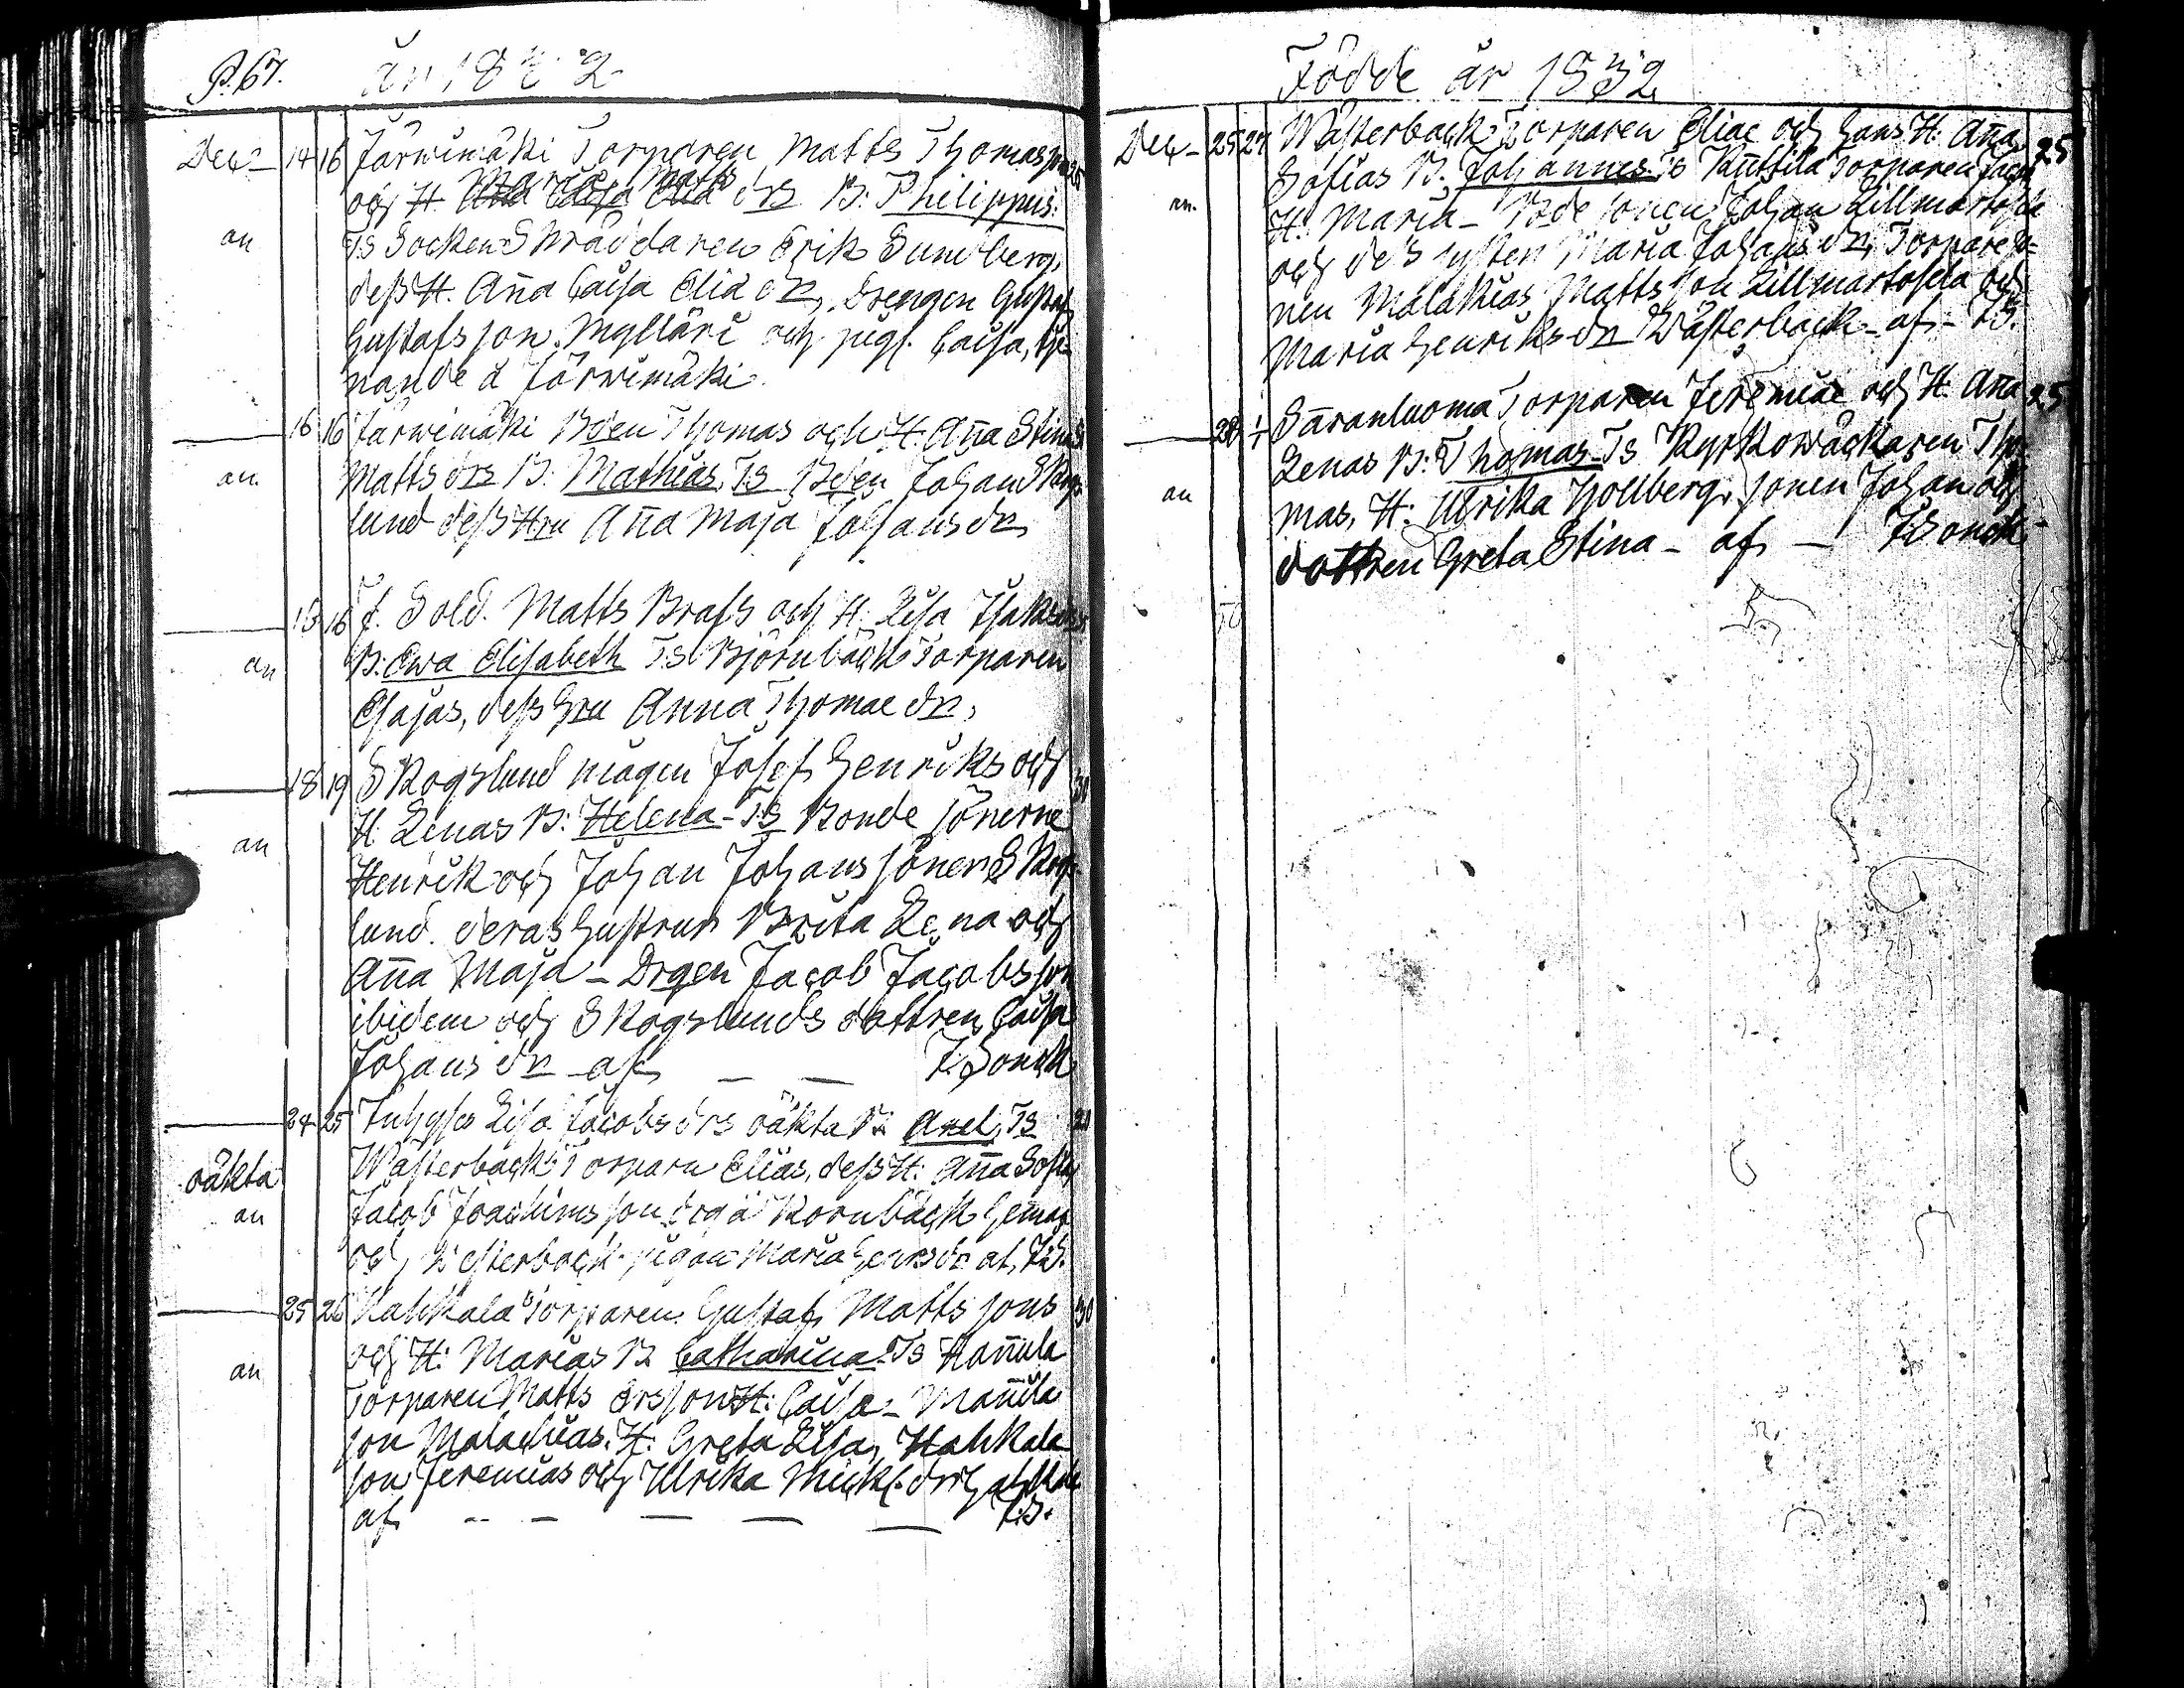 P. 67. år 1832
Dec. 14 16 Järwimäki Torparen Matts Thomasson
och H. Maria Matts drs B: Philippus.
an Ts Socken Skräddaren Erik Sundberg,
dess H. Anna Caisa Elia dr, Drengen Gustaf
Gustafsson Mylläri och pig. Caisa, tje-
nande å Järwimäki
16 16 Järwimäki Bden Thomas och H. Anna Stinas
an Matts drs B: Mathias, Ts Bden Johan Skogs
lund dess Hru Anna Maja Johans dr
15 16 f. Sold. Matts Brass och H. Lisa Isaks drs
an B: Ewa Elisabeth Ts Björnbäck Torparen
Esajas, dess Hru Anna Thomae dr,
18 19 Skogslund mågen Josef Henriks och 30
H. Lenas B: Helena - Ts Bonde sönerne
an Henrik och Johan Johans söner Skogs
lund. deras hustrur Brita Lena och
Anna Maja - Drgen Jacob Jacobsson
ibidem och Skogslunds dottren Caisa
Johans dr af — — Sonck
24 25 Inhyses Lisa Jacobs drs oäkta B: Axel, Ts 21
oäkta Wästerback Torparn Elias, dess H: Anna Sofia
an Jacob Joachimsson
och Westerback pigan Maria Henrs dr af
25 26 Kahkala Torparen Gustaf Mattssons 30
och H: Marias B Catharina. Ts Hannula
an Torparen Matts Ersson H: Caisa - Mannila
son Malachias. H: Greta Lisa, Kahkala
son Jeremias och Ulrika Mick. dr
af — — — —
Födde år 1832
Dec - 25 27 Wästerback Torparen Eliae och hans H: Anna 25
Sofias B. Johannes. Ts Ruttila Torparen Jacob
an. H. Maria - Bde sonen Johan Lillmartosela
och des syster Maria Johans dr, Torpare so-
nen Malakias Mattsson Lillmartosela och
Maria Henriks dr Wästerback - af -
28 1/1 Saranluoma Torparen Jeremiae och H. Anna 25
Lenas B: Thomas - Ts Kyrkowäckaren Tho-
an mas, H: Ulrika Hollberg, sonen Johan och
dottren Greta Stina - af — Sonck